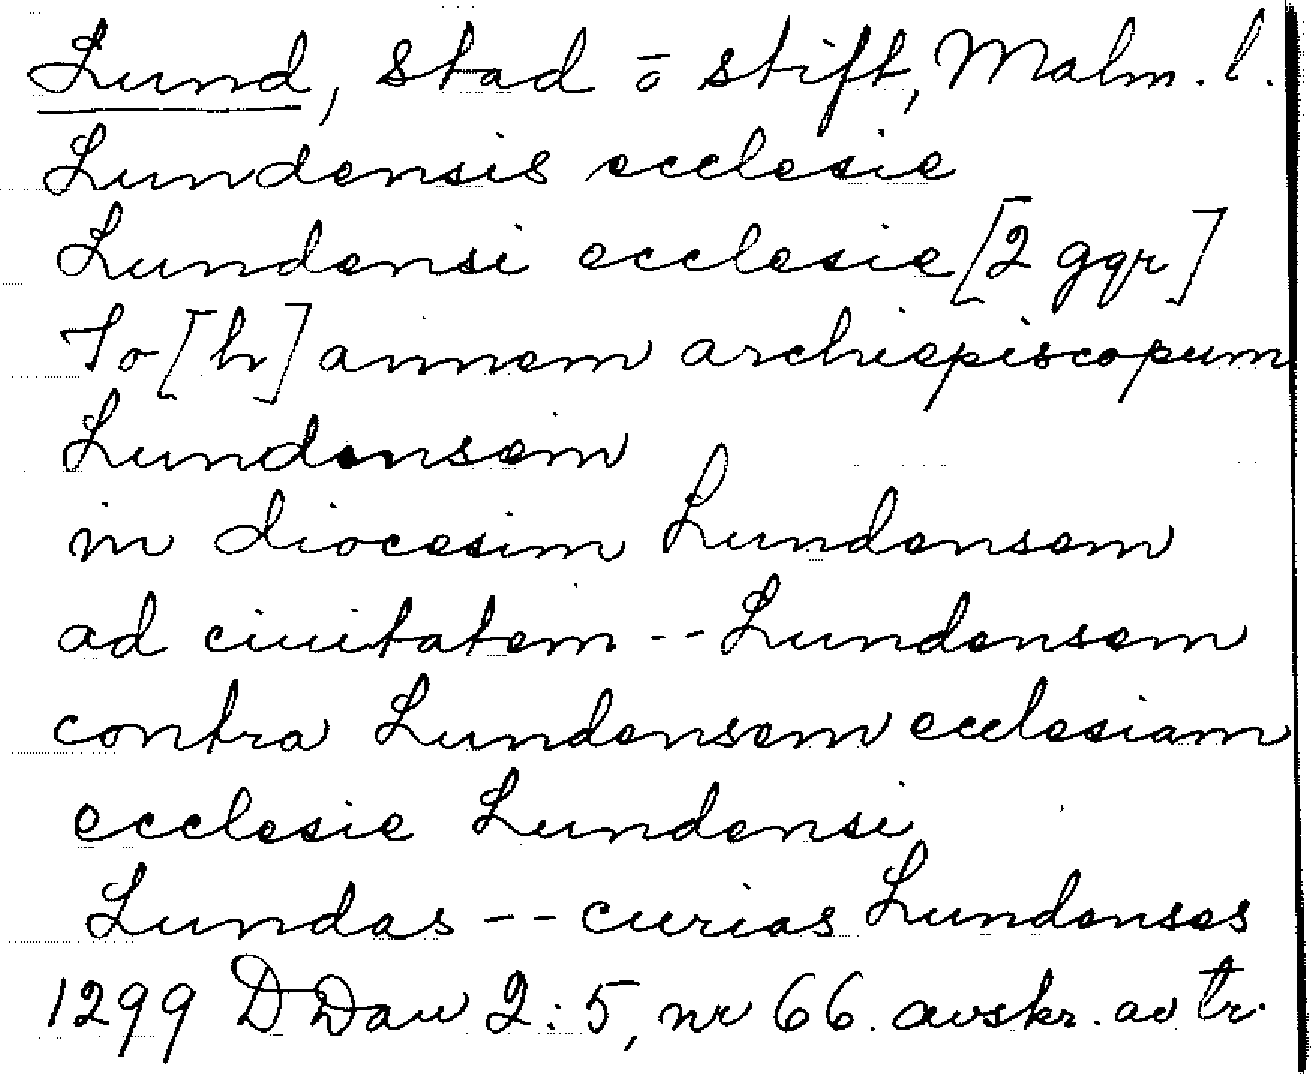 Lund, stad o stift, Malm. l.
Lundensis ecclesie
Lundensi ecclesie [2 ggr]
Jo[h]annem archiepiscopum
Lundensem
in diocesim Lundensem
ad ciuitatem -- Lundensem
contra Lundensem ecclesiam
ecclesie Lundensi
Lundas -- curias Lundenses
1299 DDan 2:5, nr 66. avskr. av tr.